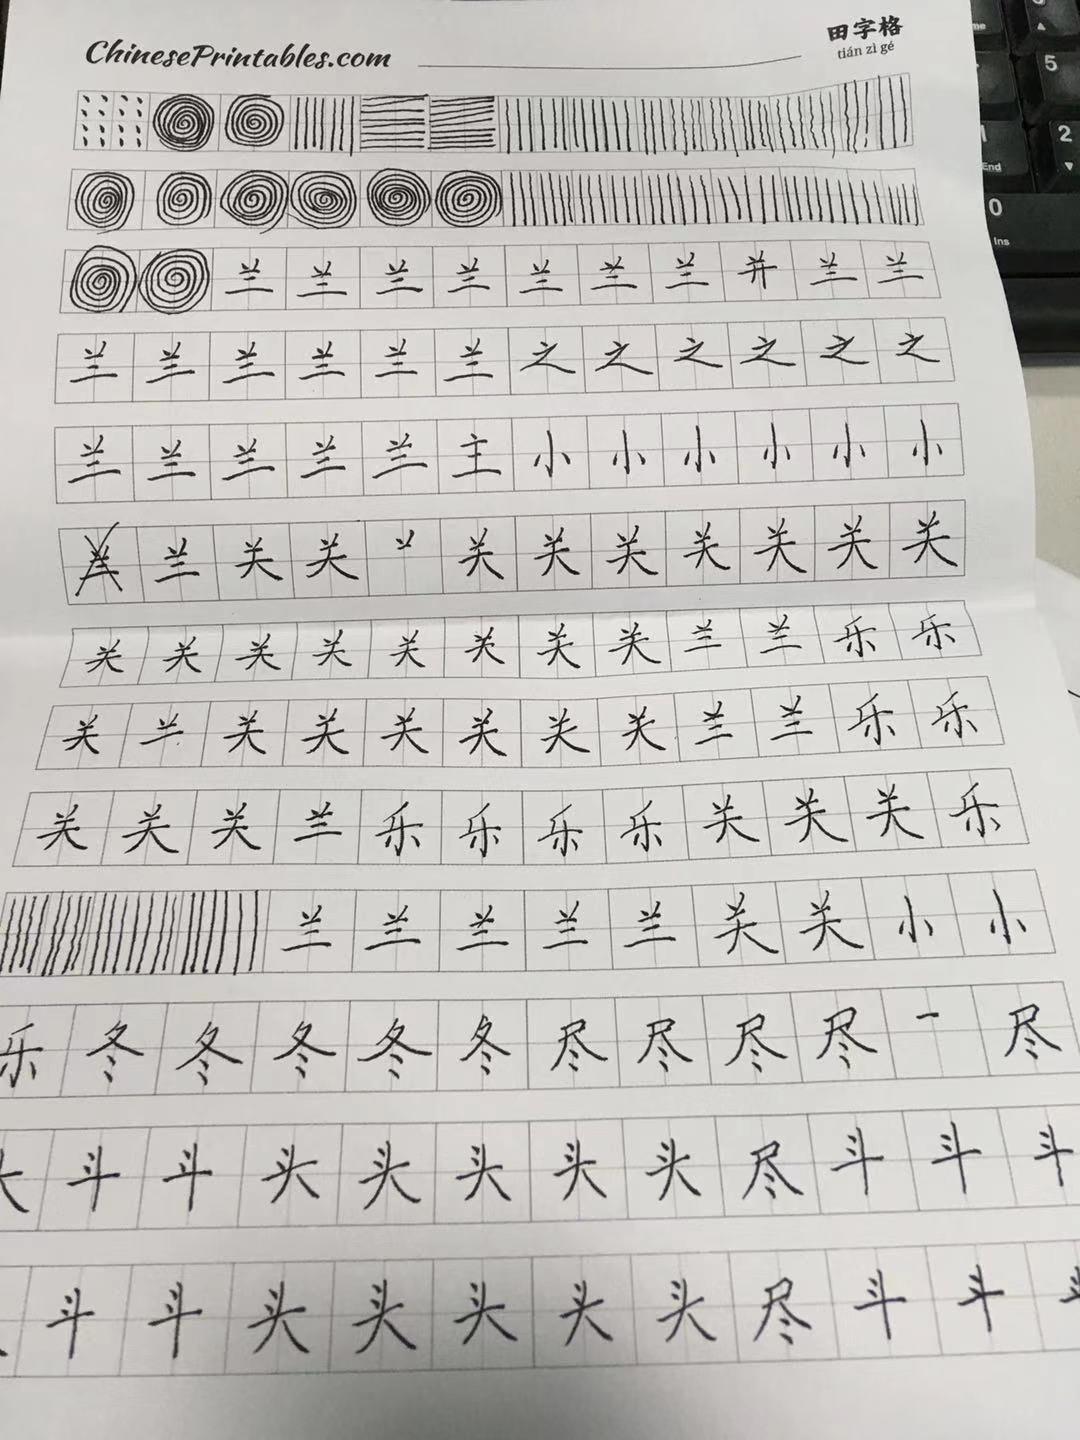 ChinesePrintables.com
田字格
tián zì gé
兰 兰 兰 兰 兰 兰 兰 并 兰 兰
兰 兰 兰 兰 兰 兰 之 之 之 之 之 之
兰 兰 兰 兰 兰 主 小 小 小 小 小 小
兰 关 关 丷 关 关 关 关 关 关 关
关 关 关 关 关 关 关 关 兰 兰 乐 乐
关 兰 关 关 关 关 关 关 兰 兰 乐 乐
关 关 关 兰 乐 乐 乐 乐 关 关 关 乐
兰 兰 兰 兰 兰 关 关 小 小
乐 冬 冬 冬 冬 冬 尽 尽 尽 尽 一 尽
头 斗 斗 头 头 头 头 头 尽 斗 斗 斗
斗 斗 头 头 头 头 头 尽 斗 斗
me
5
1
End
2
0
Ins